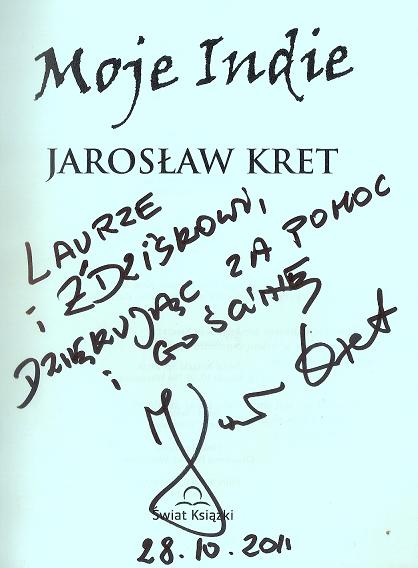 Moje Indie
JAROSŁAW KRET
LAURZE
i ŹDZIŚKOWI,
DZIĘKUJĄC ZA POMOC
i GOŚCINĘ
Kret
Świat Książki
28.10.2011